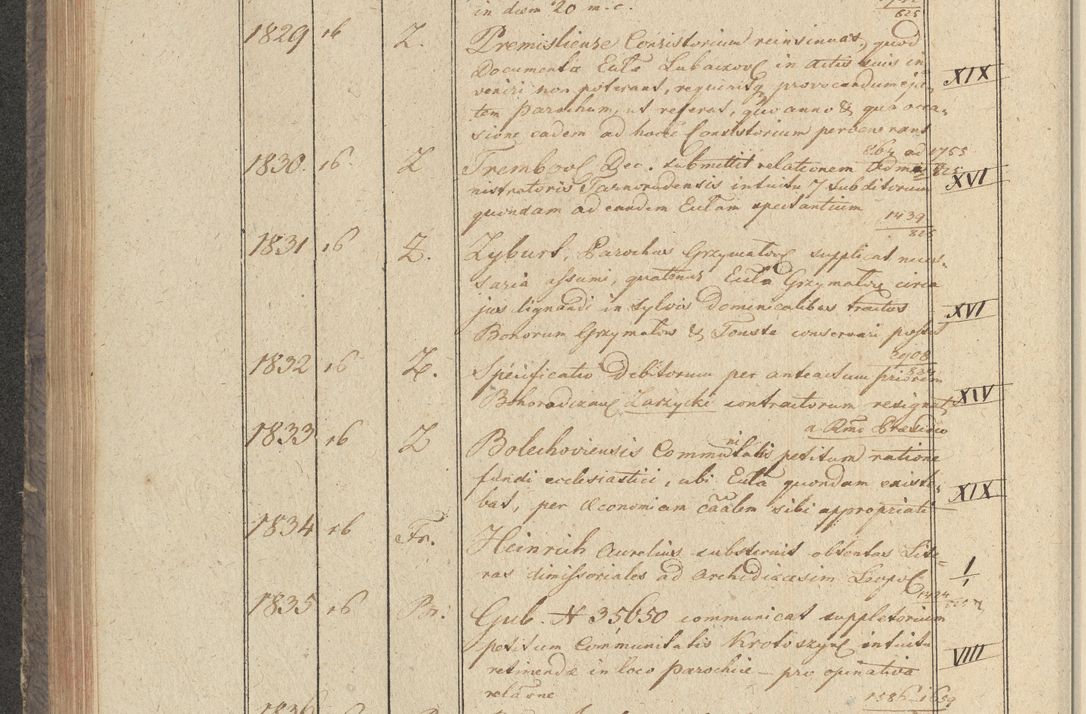 in diem 20 m. c.
825
1829 16 Z. Premisliense Consistorium reinsinuat, quod
Documenta Eccla Lubaczov in actis suis in=
veniri non poterant, requiritq provocandum esse
tem Parochum, ut referat, quo anno & qua occa=
sione eadem ad hocce Consistorium pervenerant
XIX
ad 1755
1830. 16. Z Trembov Dec. submittit relationem Admi=
nistratoris Tarnorudensis intuitu 7 subditorum
quondam ad eandem Eccliam spectantium
XVI
1439
825
1831 16 Z. Zyburt, Parochus Grzymalov supplicat neces=
saria assumi, quatenus Eccla Grzymalov circa
jus lignandi in sylvis Dominicalibus tractus
Bonorum Grzymalow & Touste conservari possit
XVI
3908
1832 16 Z. Specificatio Debitorum per anteactum priorem
Bohorodczan Zarzycki contractorum resignat
XIV
a Rmo Praesidio
1833 16 Z Bolechoviensis Communitatis petitum ratione
fundi ecclesiastici, ubi Eccla quondam existe=
bat, per Oeconomiam caalem sibi appropriati
XIX
1834 16 Fr. Heinrich Aurelius substernit obtentas Lite=
ras dimissoriales ad Archidiaecesim Leopol
1/1
1424
1835 16 Pr: Gub. N 35650 communicat suppletorium
petitum Communitatis Krotoszyn intuitu
retinendae in loco Parochiae – pro opinativa
relaone
VIII
1586 1659
1836